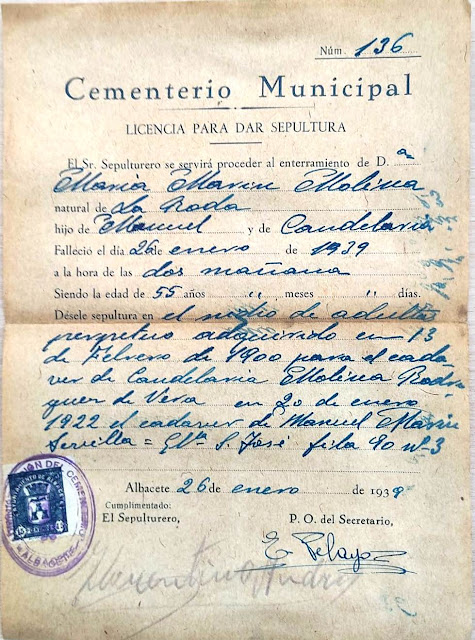 Núm. 136
Cementerio Municipal
LICENCIA PARA DAR SEPULTURA
El Sr. Sepulturero se servirá proceder al enterramiento de D.a
Maria Marin Molina
natural de La Roda
hijo de Manuel y de Candelaria
Falleció el día 26 de enero de 1939
a la hora de las dos mañana
Siendo la edad de 55 años " meses " días.
Désele sepultura en el nicho de adulto
perpetuo adquirido en 13
de Febrero de 1900 para el cada
ver de Candelaria Molina Rodri
guez de Vera en 20 de enero
1922 el cadaver de Manuel Marin
Sevilla = S. José fila 90 nº 3
Albacete 26 de enero de 1939
Cumplimentado:
El Sepulturero,
P. O. del Secretario,
E Pelayo